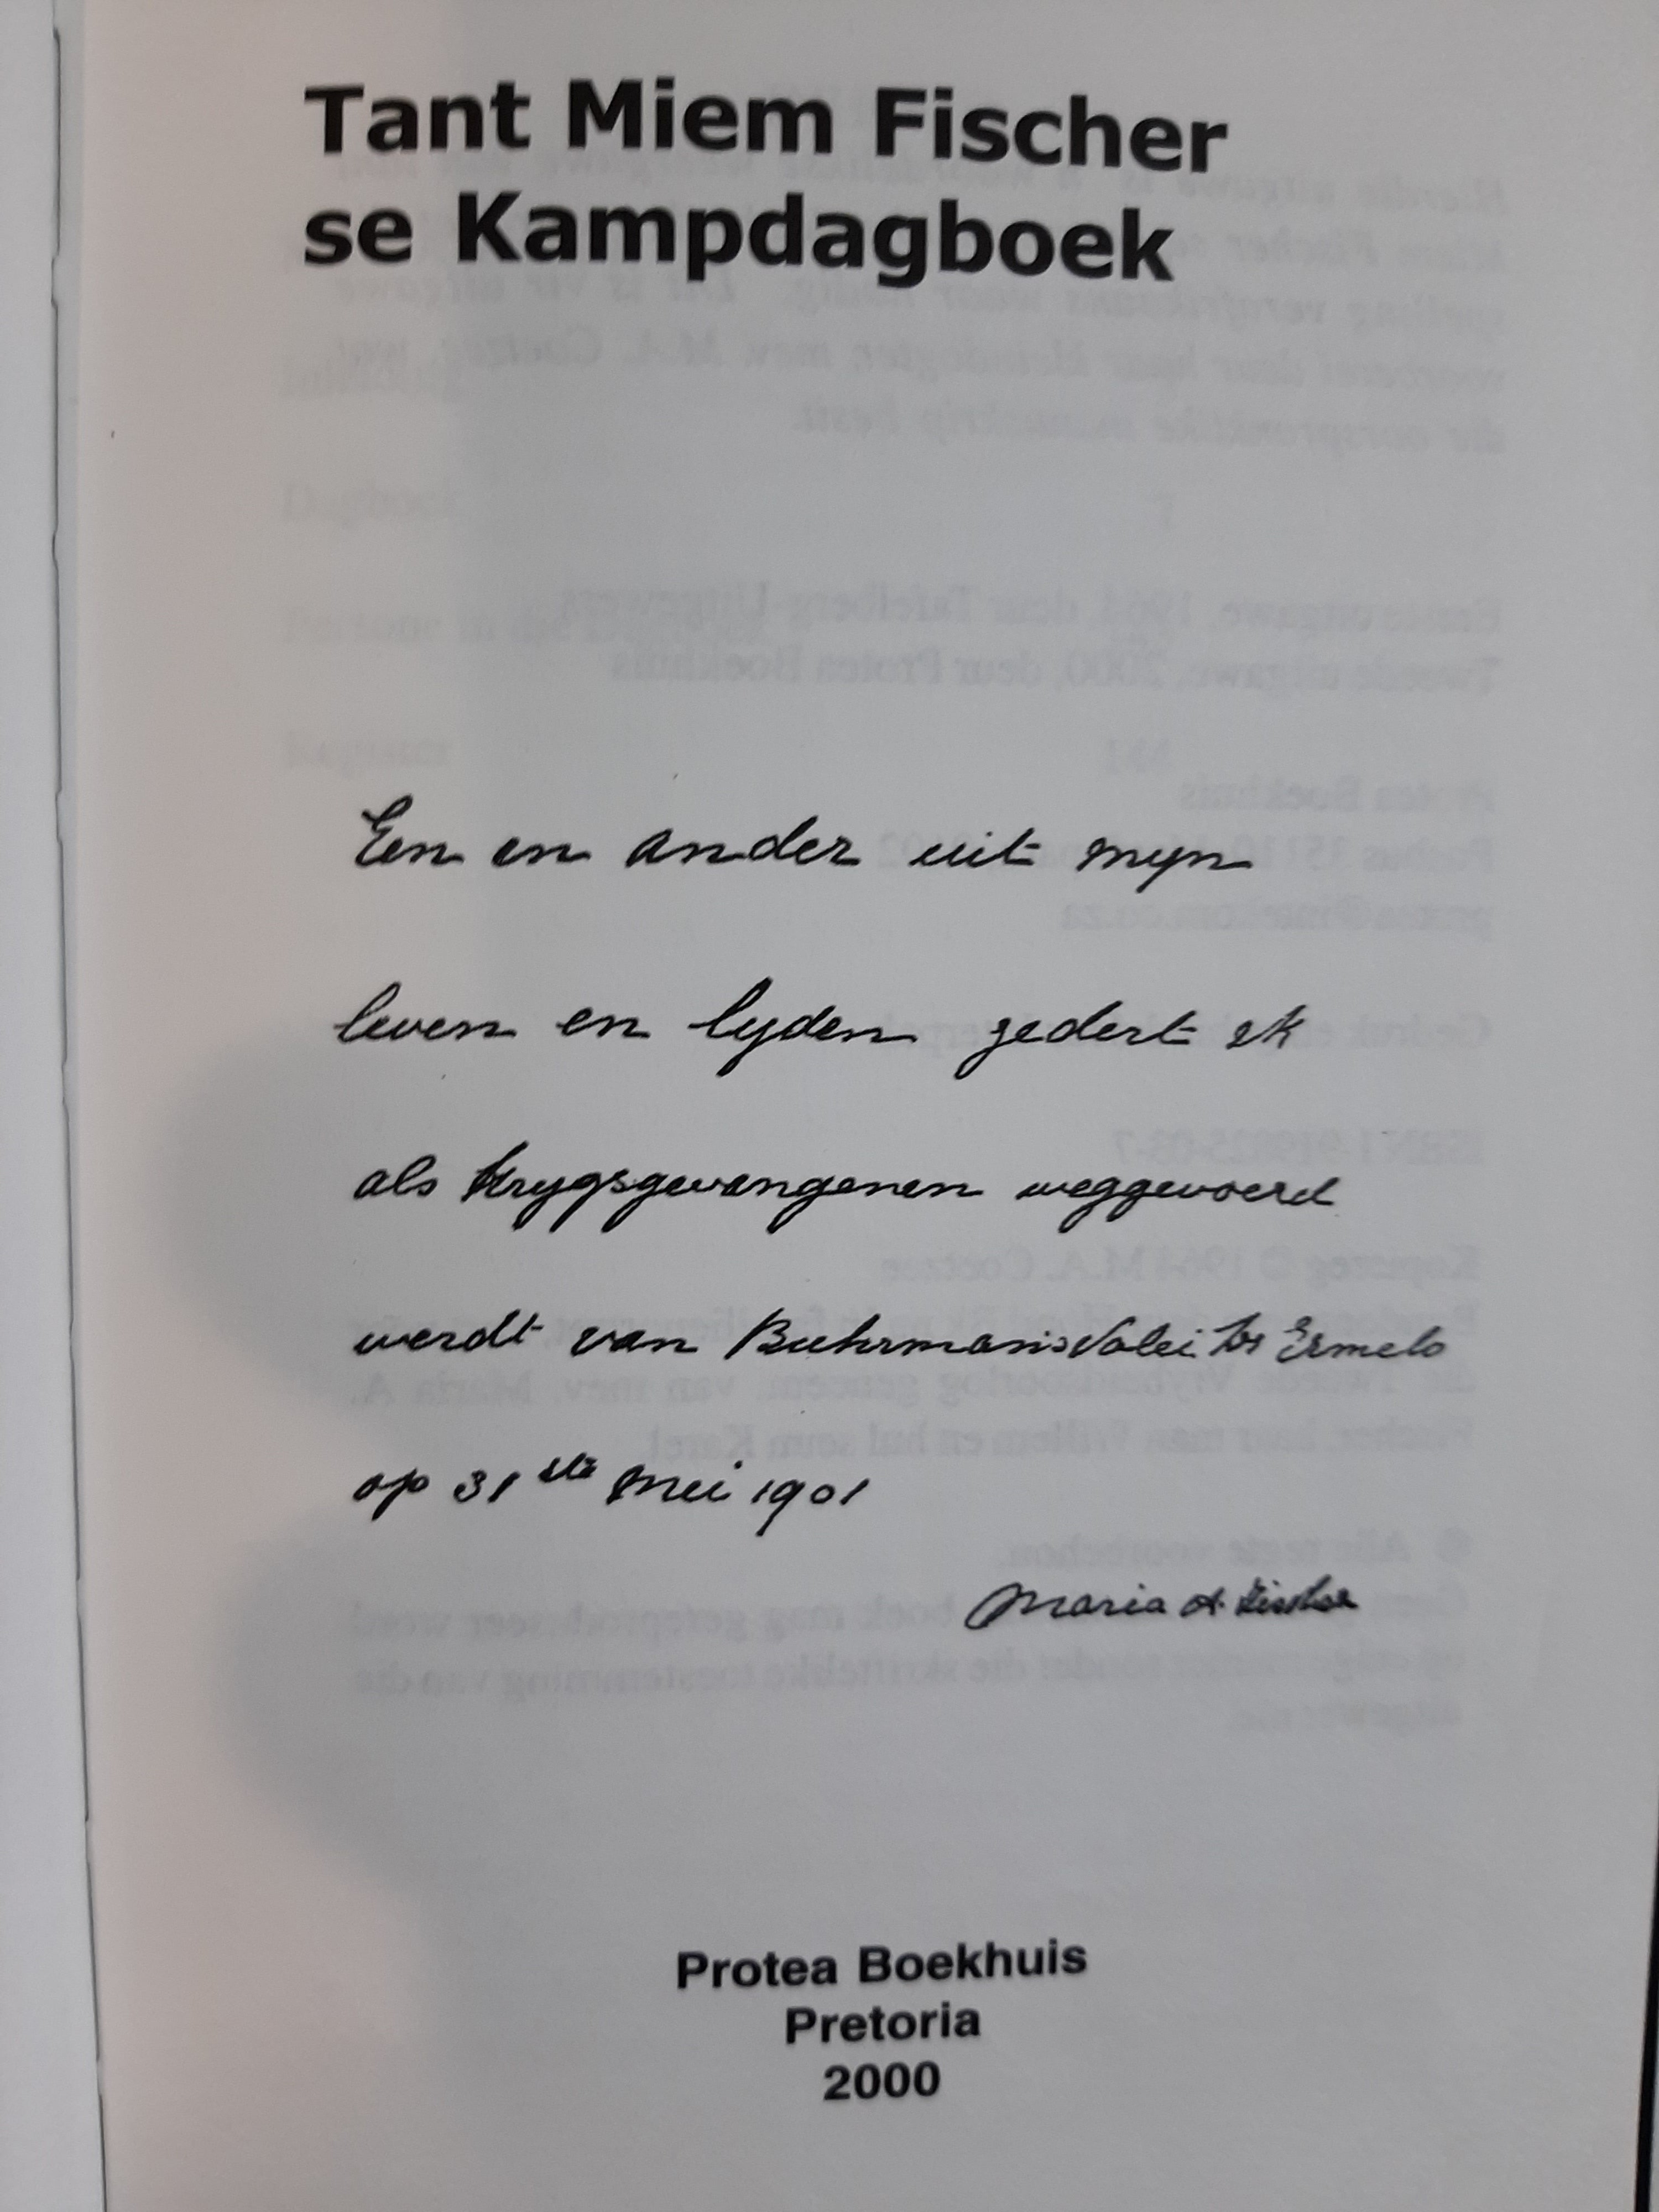 Tant Miem Fischer
se Kampdagboek
Een en ander uit myn
leven en lyden zedert ik
als krygsgevangenen weggevoerd
werdt van Buhrmansvalei Ermelo
op 31ste Mei 1901
Maria A. Fischer
Protea Boekhuis
Pretoria
2000